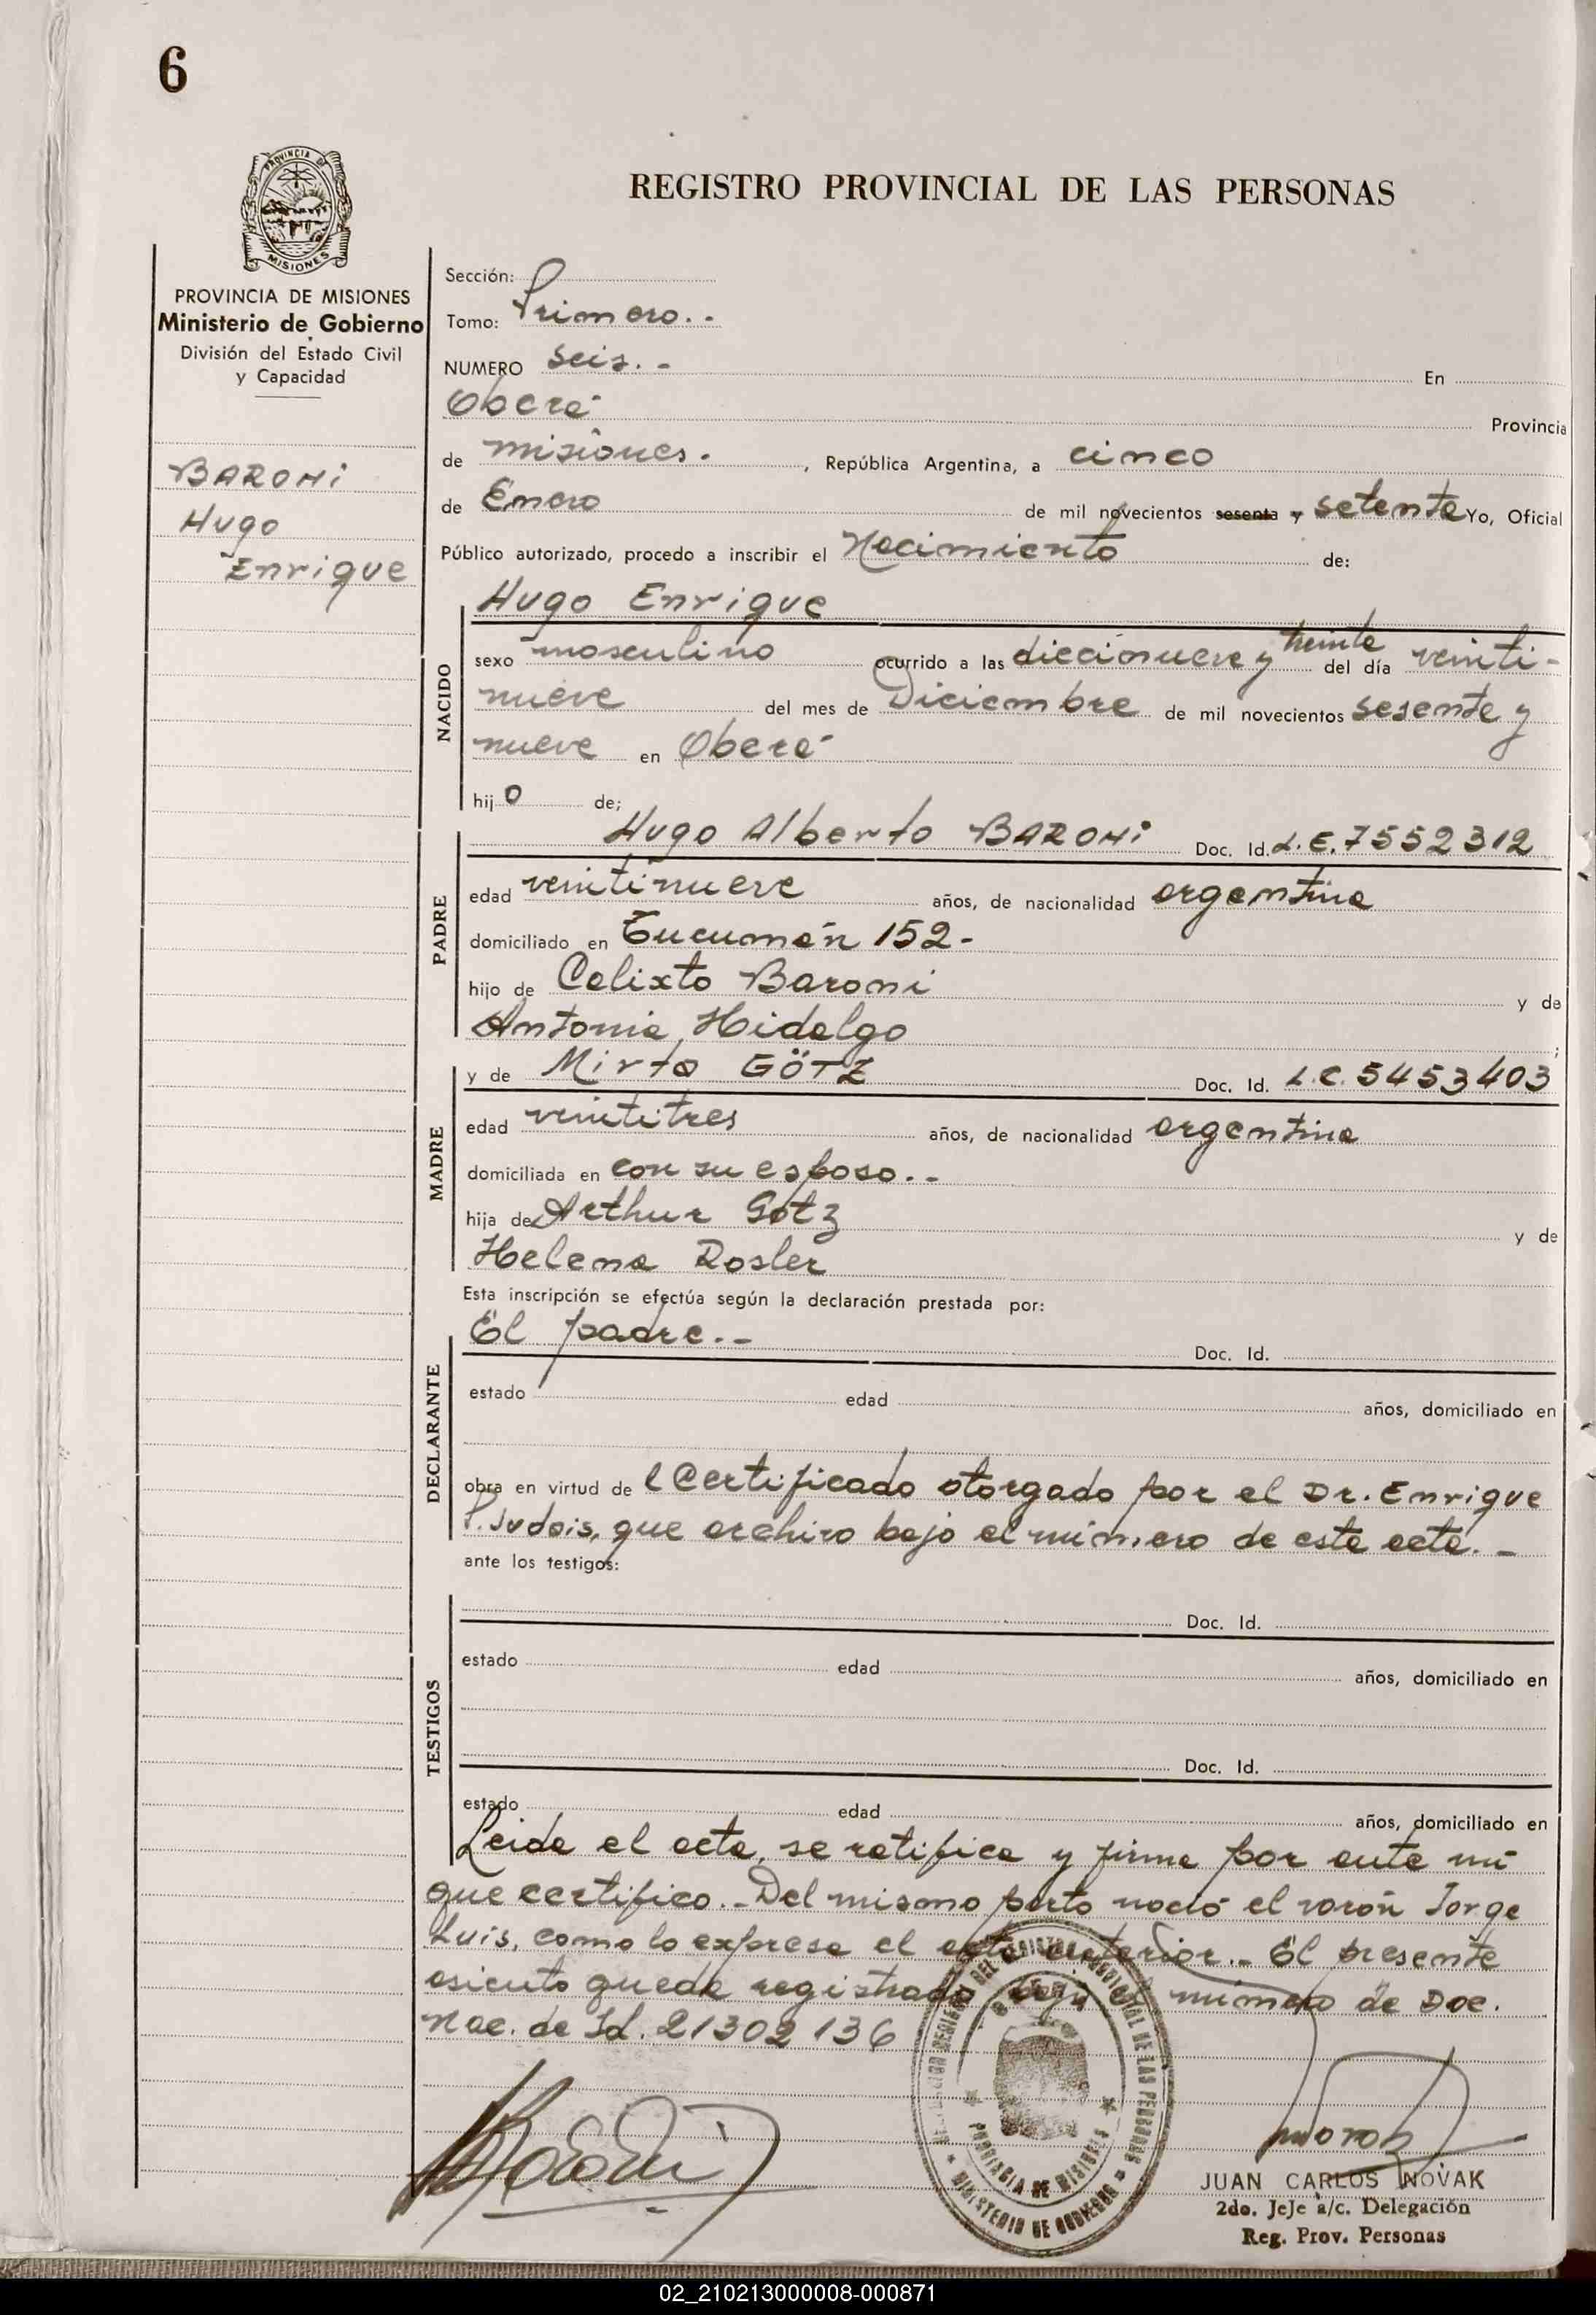 6
PROVINCIA DE
MISIONES
REGISTRO PROVINCIAL DE LAS PERSONAS
PROVINCIA DE MISIONES
Ministerio de Gobierno
División del Estado Civil
y Capacidad
BARONI
Hugo
Enrique
Sección:
Tomo: Primero. -
NUMERO Seis. - En
Oberá Provincia
de Misiones. , República Argentina, a cinco
de Enero de mil novecientos sesenta y setenta Yo, Oficial
Público autorizado, procedo a inscribir el Nacimiento de:
Hugo Enrique
NACIDO
sexo masculino ocurrido a las diecinueve y treinta del día veinti-
nueve del mes de Diciembre de mil novecientos sesenta y
nueve en Oberá
hijo de;
PADRE
Hugo Alberto BARONI Doc. Id. L.E. 7552312
edad veintinueve años, de nacionalidad argentina
domiciliado en Tucumán 152-
hijo de Calixto Baroni y de
Antonia Hidalgo ;
MADRE
y de Mirta GÖTZ Doc. Id. L.C. 5453403
edad veintitres años, de nacionalidad argentina
domiciliada en con su esposo. -
hija de Arthur Götz y de
Helena Rosler
Esta inscripción se efectúa según la declaración prestada por:
DECLARANTE
El padre. - Doc. Id.
estado edad años, domiciliado en
obra en virtud de l Certificado otorgado por el Dr. Enrique
P. Judais, que archivo bajo el número de esta acta. -
ante los testigos:
TESTIGOS
Doc. Id.
estado edad años, domiciliado en
Doc. Id.
estado edad años, domiciliado en
Leida el acta, se ratifica y firma por ante mi
que certifico. - Del mismo parto nació el varón Jorge
Luis, como lo expresa el acta anterior. - El presente
asiento queda registrado bajo el número de Doc.
Nac. de Id. 21302136
PROVINCIA DE MISIONES
MINISTERIO DE GOBIERNO
JUAN CARLOS NOVAK
2do. JeJe a/c. Delegación
Reg. Prov. Personas
02_210213000008-000871